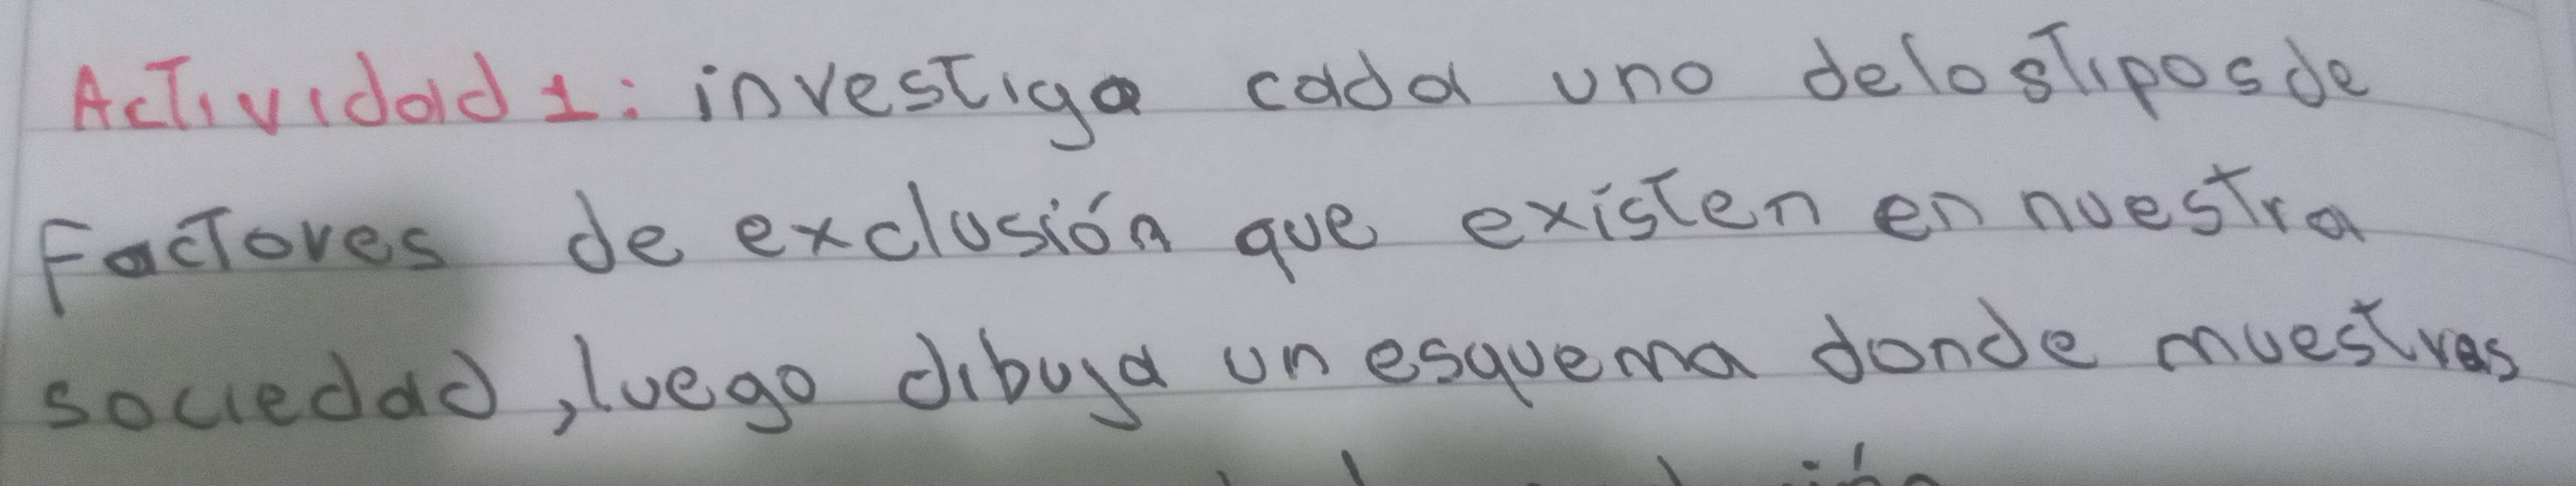 Actividad 1: investiga cada uno delostiposde
Factores de exclusión que existen en nuestra
sociedad, luego dibuja un esquema donde muestras